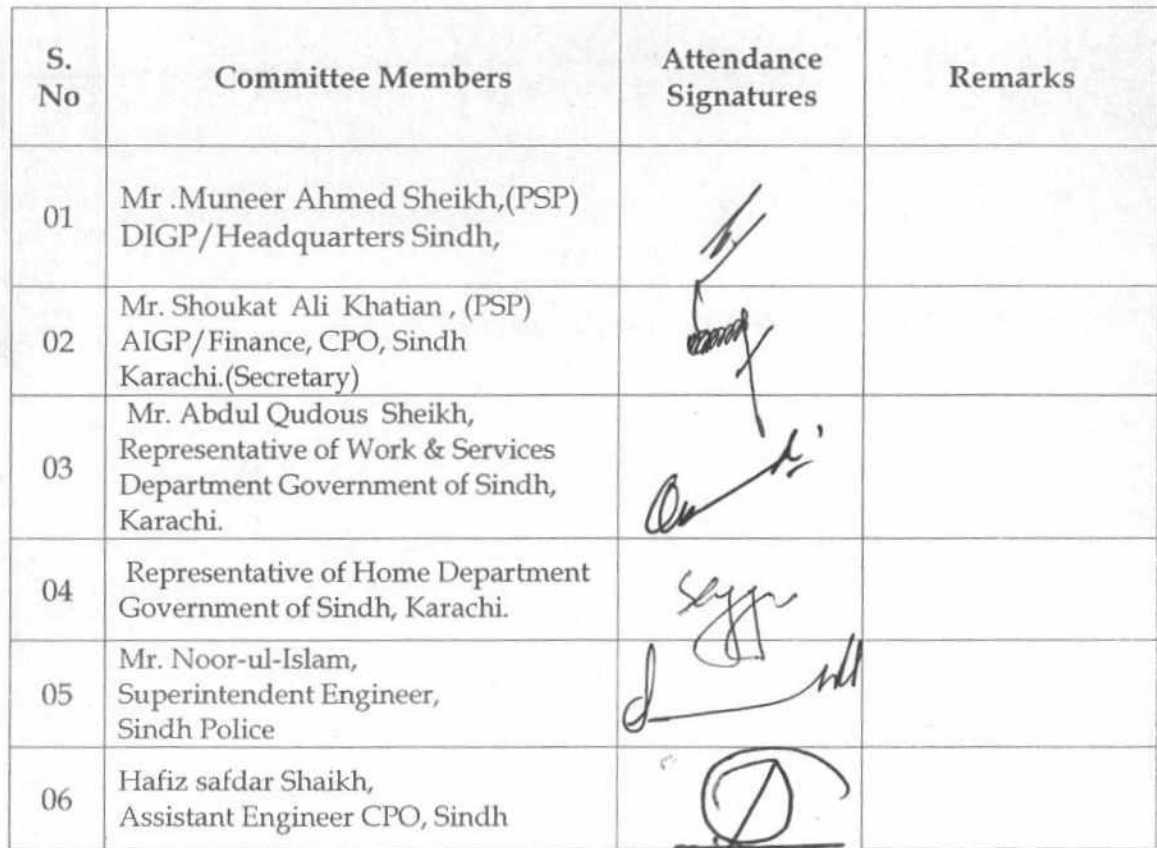 S. No Committee Members Attendance Signatures Remarks
01 Mr .Muneer Ahmed Sheikh,(PSP)
DIGP/Headquarters Sindh,
02 Mr. Shoukat Ali Khatian , (PSP)
AIGP/Finance, CPO, Sindh
Karachi.(Secretary)
03 Mr. Abdul Qudous Sheikh,
Representative of Work & Services
Department Government of Sindh,
Karachi.
04 Representative of Home Department
Government of Sindh, Karachi.
05 Mr. Noor-ul-Islam,
Superintendent Engineer,
Sindh Police
06 Hafiz safdar Shaikh,
Assistant Engineer CPO, Sindh